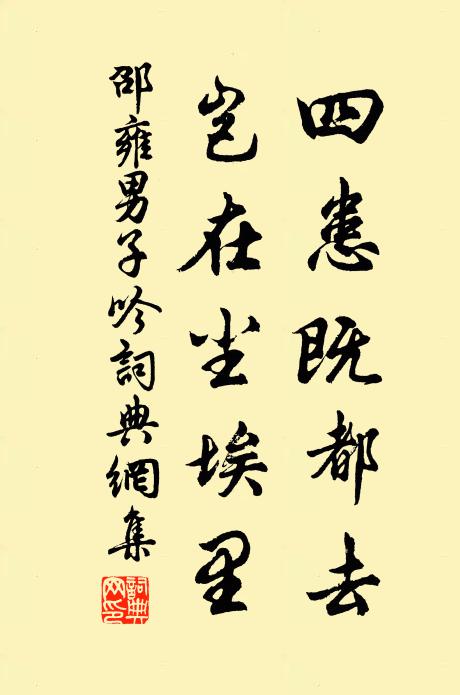 四患既都去
岂在尘埃里
邵雍男子吟詞典網集
詞典网印